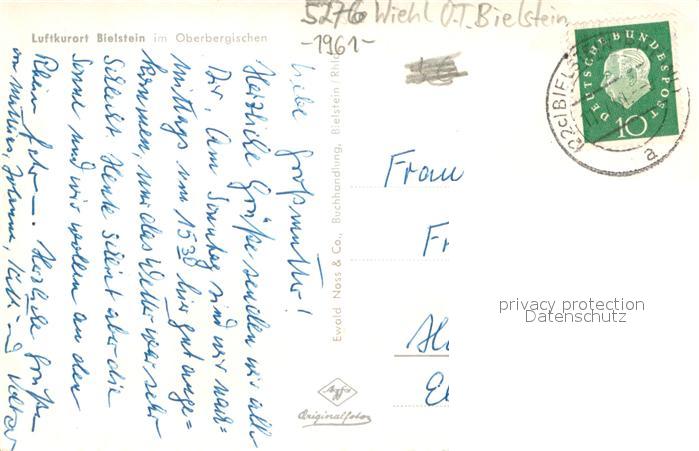 5276 Wiehl O.T. Bielstein
-1961-
Luftkurort Bielstein im Oberbergischen
Liebe Großmutter!
Herzliche Grüße senden wir alle
Dir. Am Sonntag sind wir nach=
mittags um 15 30 hier gut ange=
kommen, und das Wetter war sehr
schlecht. Heute scheint aber die
Sonne und wir wollen an den
Rhein fahren. Herzliche Grüße
von
Ewald Noss & Co., Buchhandlung, Bielstein / Rhld
Agfa
Originalfoto
Frau
Fr
DEUTSCHE BUNDESPOST
10
(22c) BIELS
a
privacy protection
Datenschutz